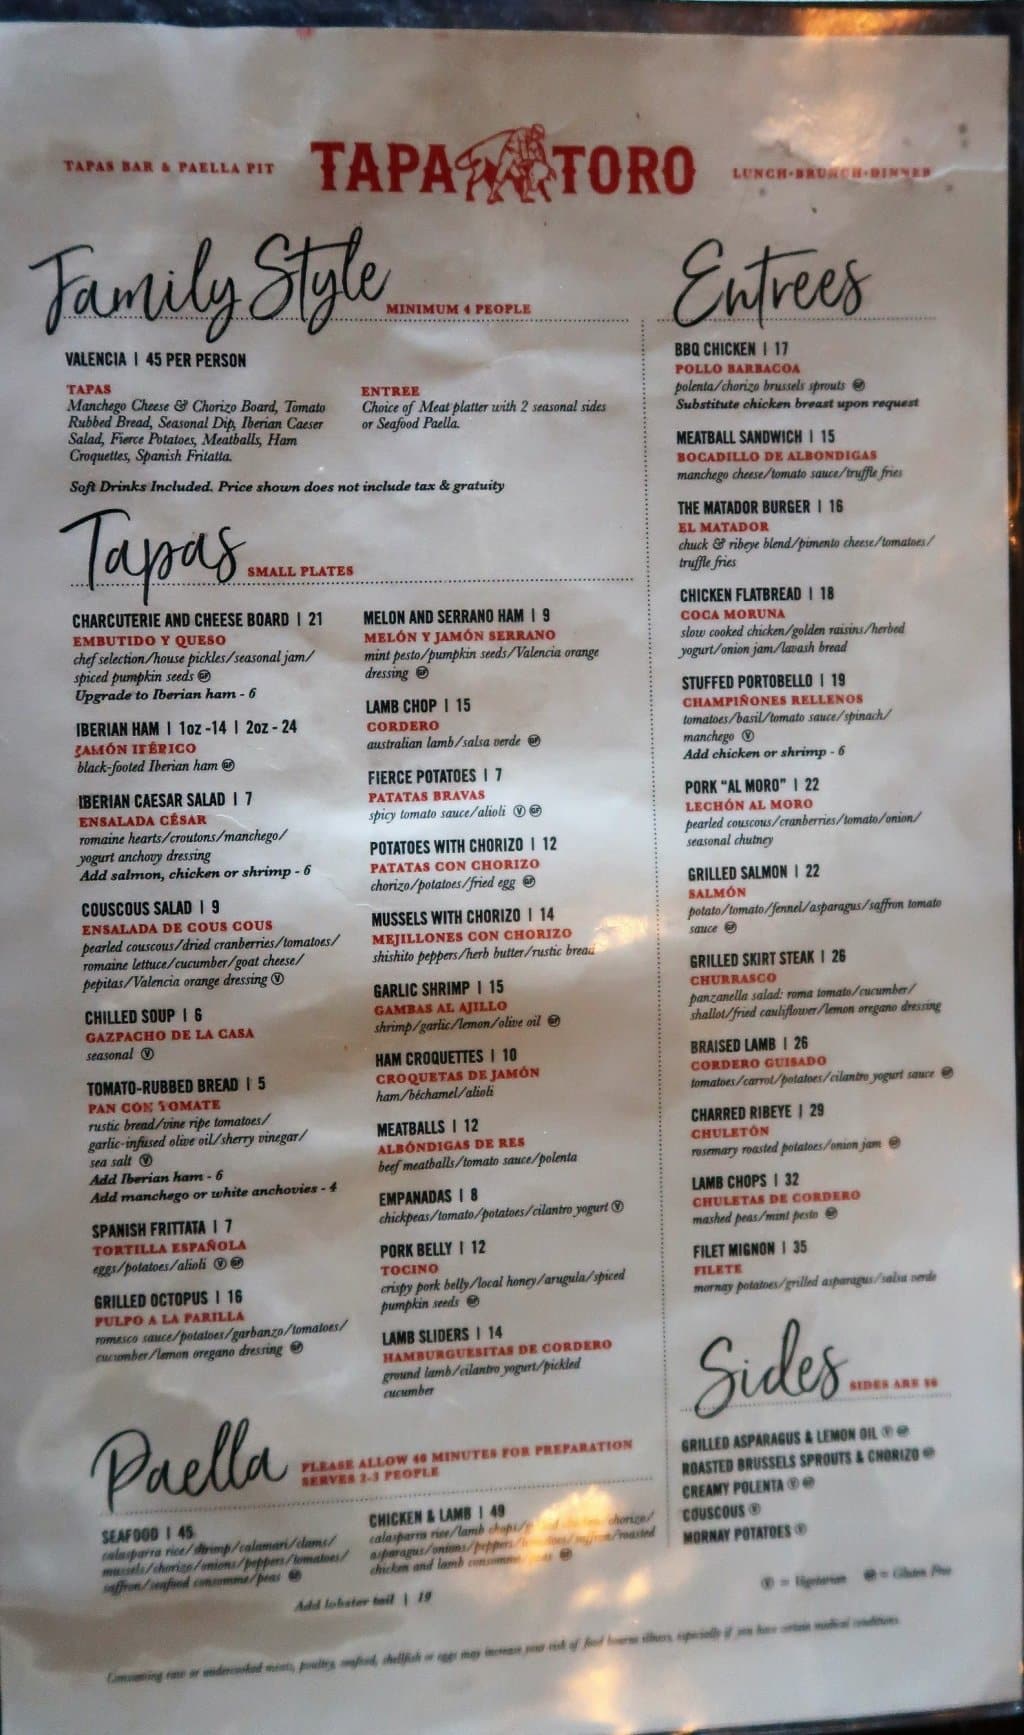 TAPAS BAR & PAELLA PIT
TAPA TORO
LUNCH•BRUNCH•DINNER
Family Style MINIMUM 4 PEOPLE
VALENCIA | 45 PER PERSON
TAPAS
Manchego Cheese & Chorizo Board, Tomato
Rubbed Bread, Seasonal Dip, Iberian Caeser
Salad, Fierce Potatoes, Meatballs, Ham
Croquettes, Spanish Fritatta.
ENTREE
Choice of Meat platter with 2 seasonal sides
or Seafood Paella.
Soft Drinks Included. Price shown does not include tax & gratuity
Tapas SMALL PLATES
CHARCUTERIE AND CHEESE BOARD | 21
EMBUTIDO Y QUESO
chef selection/house pickles/seasonal jam/
spiced pumpkin seeds GF
Upgrade to Iberian ham - 6
IBERIAN HAM | 1oz -14 | 2oz - 24
JAMÓN IBÉRICO
black-footed Iberian ham GF
IBERIAN CAESAR SALAD | 7
ENSALADA CÉSAR
romaine hearts/croutons/manchego/
yogurt anchovy dressing
Add salmon, chicken or shrimp - 6
COUSCOUS SALAD | 9
ENSALADA DE COUS COUS
pearled couscous/dried cranberries/tomatoes/
romaine lettuce/cucumber/goat cheese/
pepitas/Valencia orange dressing V
CHILLED SOUP | 6
GAZPACHO DE LA CASA
seasonal V
TOMATO-RUBBED BREAD | 5
PAN CON TOMATE
rustic bread/vine ripe tomatoes/
garlic-infused olive oil/sherry vinegar/
sea salt V
Add Iberian ham - 6
Add manchego or white anchovies - 4
SPANISH FRITTATA | 7
TORTILLA ESPAÑOLA
eggs/potatoes/alioli V GF
GRILLED OCTOPUS | 16
PULPO A LA PARILLA
romesco sauce/potatoes/garbanzo/tomatoes/
cucumber/lemon oregano dressing GF
MELON AND SERRANO HAM | 9
MELÓN Y JAMÓN SERRANO
mint pesto/pumpkin seeds/Valencia orange
dressing GF
LAMB CHOP | 15
CORDERO
australian lamb/salsa verde GF
FIERCE POTATOES | 7
PATATAS BRAVAS
spicy tomato sauce/alioli V GF
POTATOES WITH CHORIZO | 12
PATATAS CON CHORIZO
chorizo/potatoes/fried egg GF
MUSSELS WITH CHORIZO | 14
MEJILLONES CON CHORIZO
shishito peppers/herb butter/rustic bread
GARLIC SHRIMP | 15
GAMBAS AL AJILLO
shrimp/garlic/lemon/olive oil GF
HAM CROQUETTES | 10
CROQUETAS DE JAMÓN
ham/béchamel/alioli
MEATBALLS | 12
ALBÓNDIGAS DE RES
beef meatballs/tomato sauce/polenta
EMPANADAS | 8
chickpeas/tomato/potatoes/cilantro yogurt V
PORK BELLY | 12
TOCINO
crispy pork belly/local honey/arugula/spiced
pumpkin seeds GF
LAMB SLIDERS | 14
HAMBURGUESITAS DE CORDERO
ground lamb/cilantro yogurt/pickled
cucumber
Paella PLEASE ALLOW 40 MINUTES FOR PREPARATION
SERVES 2-3 PEOPLE
SEAFOOD | 45
calasparra rice/shrimp/calamari/clams/
mussels/chorizo/onions/peppers/tomatoes/
saffron/seafood consomme/peas GF
CHICKEN & LAMB | 49
calasparra rice/lamb chops/ chorizo/
asparagus/onions/peppers/ saffron/roasted
chicken and lamb consomme/peas GF
Add lobster tail | 19
Entrees
BBQ CHICKEN | 17
POLLO BARBACOA
polenta/chorizo brussels sprouts GF
Substitute chicken breast upon request
MEATBALL SANDWICH | 15
BOCADILLO DE ALBONDIGAS
manchego cheese/tomato sauce/truffle fries
THE MATADOR BURGER | 16
EL MATADOR
chuck & ribeye blend/pimento cheese/tomatoes/
truffle fries
CHICKEN FLATBREAD | 18
COCA MORUNA
slow cooked chicken/golden raisins/herbed
yogurt/onion jam/lavash bread
STUFFED PORTOBELLO | 19
CHAMPIÑONES RELLENOS
tomatoes/basil/tomato sauce/spinach/
manchego V
Add chicken or shrimp - 6
PORK "AL MORO" | 22
LECHÓN AL MORO
pearled couscous/cranberries/tomato/onion/
seasonal chutney
GRILLED SALMON | 22
SALMÓN
potato/tomato/fennel/asparagus/saffron tomato
sauce GF
GRILLED SKIRT STEAK | 26
CHURRASCO
panzanella salad: roma tomato/cucumber/
shallot/fried cauliflower/lemon oregano dressing
BRAISED LAMB | 26
CORDERO GUISADO
tomatoes/carrot/potatoes/cilantro yogurt sauce GF
CHARRED RIBEYE | 29
CHULETÓN
rosemary roasted potatoes/onion jam GF
LAMB CHOPS | 32
CHULETAS DE CORDERO
mashed peas/mint pesto GF
FILET MIGNON | 35
FILETE
mornay potatoes/grilled asparagus/salsa verde
Sides SIDES ARE $6
GRILLED ASPARAGUS & LEMON OIL V GF
ROASTED BRUSSELS SPROUTS & CHORIZO GF
CREAMY POLENTA V GF
COUSCOUS V
MORNAY POTATOES V
V = Vegetarian GF = Gluten Free
Consuming raw or undercooked meats, poultry, seafood, shellfish or eggs may increase your risk of food bourne illness, especially if you have certain medical conditions.